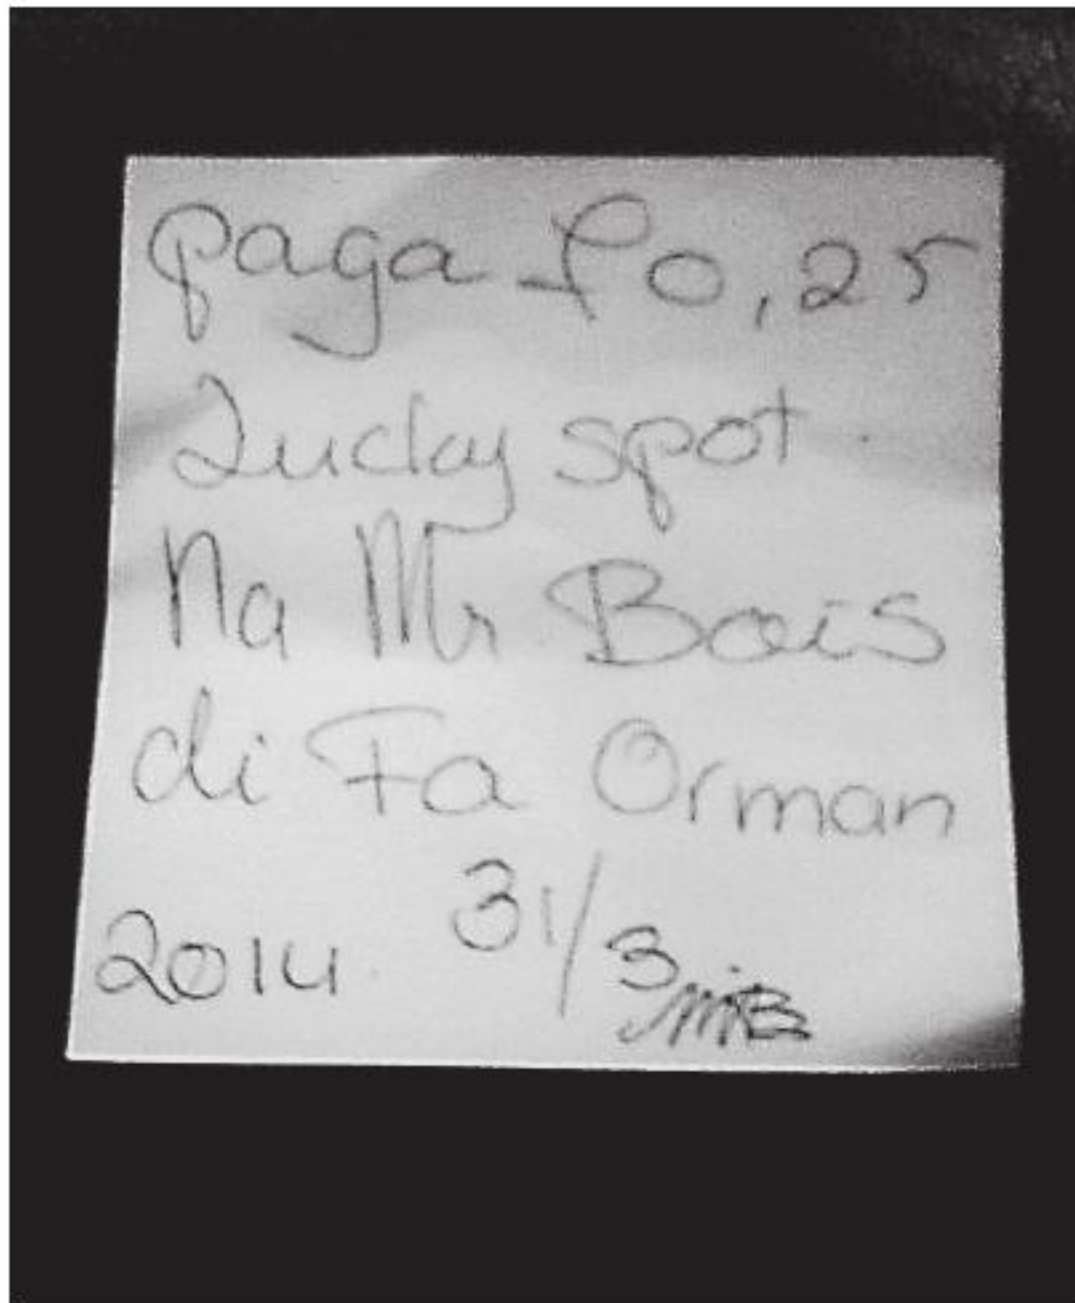 paga fo,25
Lucky spot
Na Mr Bois
di Fa Orman
31/3
2014